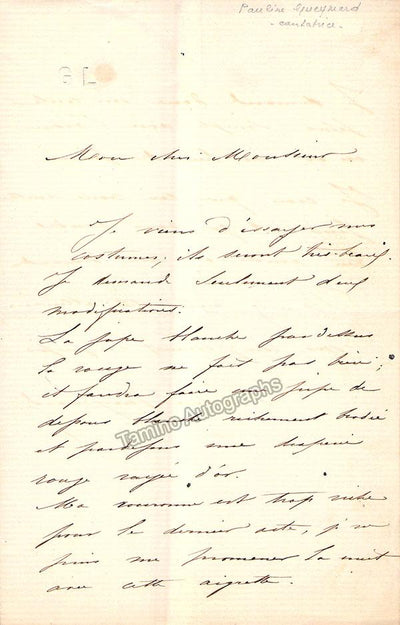 Pauline Gueymard
- cantatrice -
Mon cher Monsieur
Je viens d'essayer mes
costumes, ils seront très beaux.
Je demande seulement deux
modifications.
La jupe blanche par dessus
la rouge ne fait pas bien;
il faudra faire une jupe de
dessous blanche richement brodée
et par dessus une draperie
rouge rayée d'or.
Ma couronne est trop riche
pour le dernier acte, je ne
puis me promener la nuit
avec cette aigrette.
Tamino Autographs